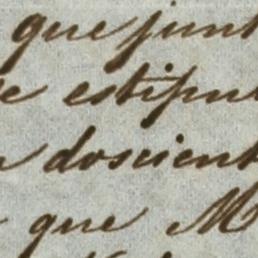 que junt
e estipul
doscient
que M